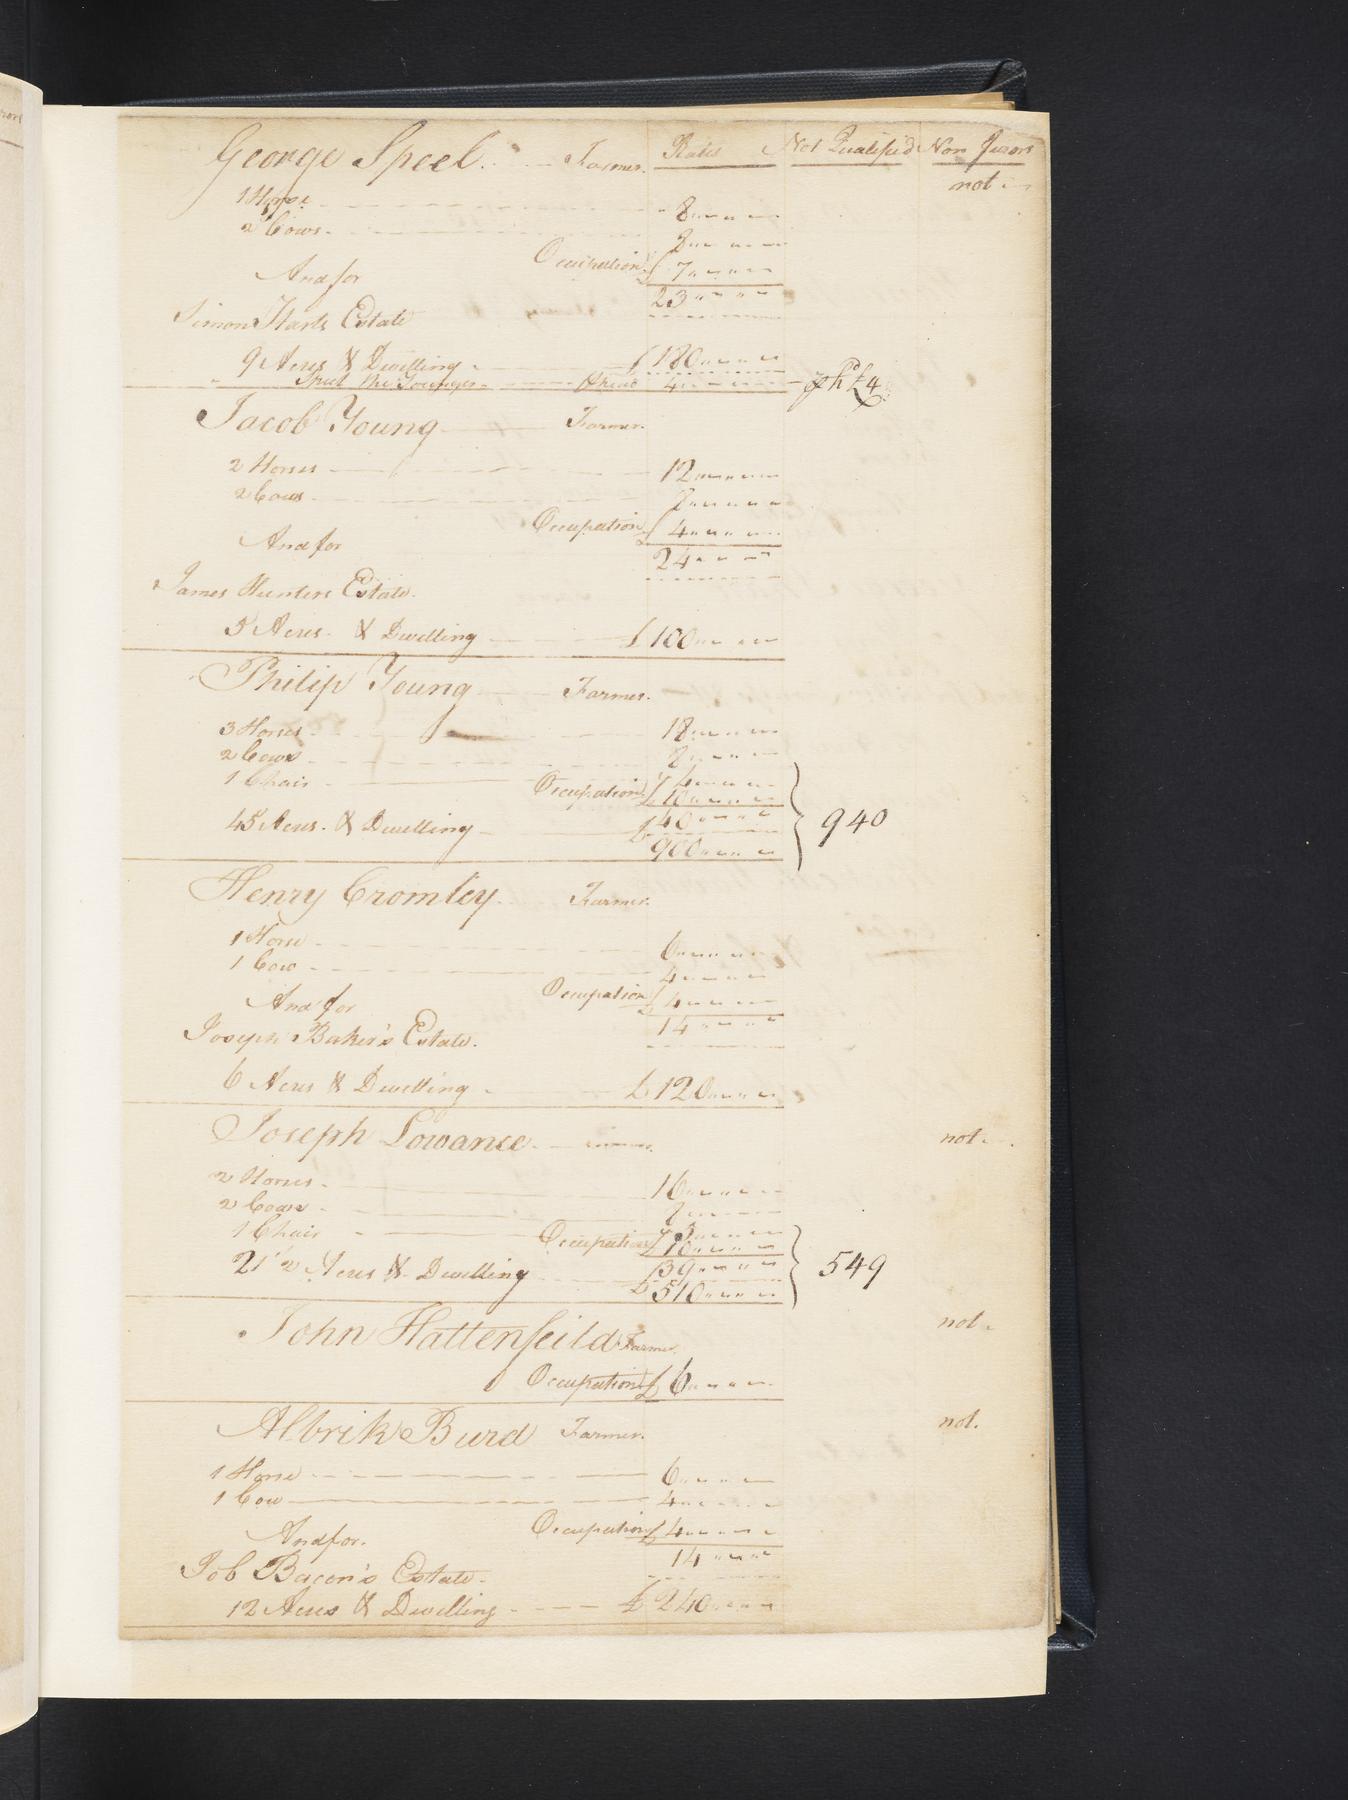 George Speel. Farmer. Rates Not Qualified Non Jurors
not
1 Horse 8
2 Cows. 8
Occupation £ 7
And for 23
Simon Harts Estate
9 Acres & Dwelling £ 180
Speel the Younger 4 £4
Jacob Young Farmer.
2 Horses 12
2 Cows. 8
Occupation £ 4
And for 24
James Hunters Estate.
5 Acres. & Dwelling £ 100
Philip Young Farmer.
3 Horses. 18
2 Cows 8
1 Chair 4
Occupation £ 10
40
45 Acres. & Dwelling £ 900 940
Henry Cromley. Farmer.
1 Horse 6
1 Cow 4
Occupation £ 4
And for 14
Joseph Baker's Estate.
6 Acres & Dwelling £ 120
Joseph Lowance not.
2 Horses. 16
2 Cows 8
1 Chair 5
Occupation £ 10
39
21 1/2 Acres & Dwelling £ 510 549
John Hattenfeild Farmer. not.
Occupation £ 6
Albrik Burd Farmer. not.
1 Horse 6
1 Cow 4
Occupation £ 4
And for. 14
Job Bacon's Estate.
12 Acres & Dwelling £ 240